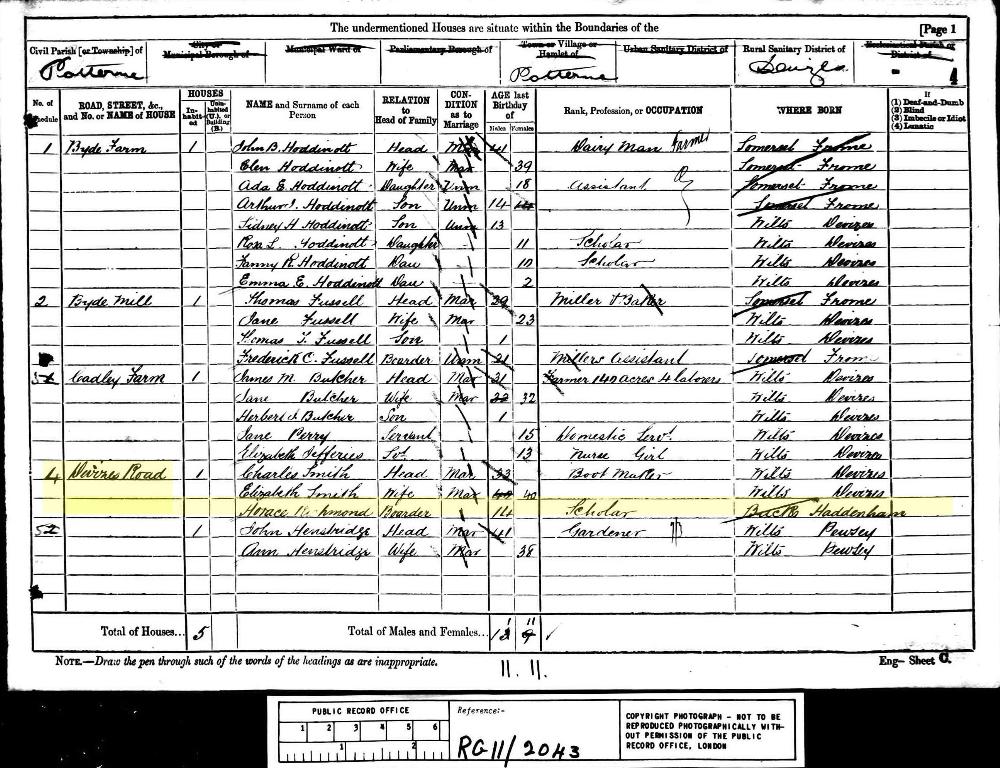 The undermentioned Houses are situate within the Boundaries of the [Page 1
Civil Parish [or Township] of City or Municipal Borough of Municipal Ward of Parliamentary Borough of Town or Village or Hamlet of Urban Sanitary District of Rural Sanitary District of Ecclesiastical Parish or District of
Potterne Potterne Devizes - 1
No. of Schedule ROAD, STREET, &c., and No. or NAME of HOUSE HOUSES In-habit-ed Unin-habited (U.), or Building (B.) NAME and Surname of each Person RELATION to Head of Family CON-DITION as to Marriage AGE last Birthday of Males Females Rank, Profession, or OCCUPATION WHERE BORN If (1) Deaf-and-Dumb (2) Blind (3) Imbecile or Idiot (4) Lunatic
1 Byde Farm 1 John B. Hoddinott Head Mar 41 Dairy Man Farmer Somerset Frome
Elen Hoddinott Wife Mar 39 Somerset Frome
Ada E. Hoddinott Daughter Unm 18 Assistant Somerset Frome
Arthur J. Hoddinott Son Unm 14 14 Somerset Frome
Sidney H Hoddinott Son Unm 13 Wilts Devizes
Rosa L. Hoddinott Daughter 11 Scholar Wilts Devizes
Fanny R. Hoddinott Dau 10 Scholar Wilts Devizes
Emma E. Hoddinott Dau 2 Wilts Devizes
2 Byde Mill 1 Thomas Fussell Head Mar 29 Miller & Baker Somerset Frome
Jane Fussell Wife Mar 23 Wilts Devizes
Thomas J. Fussell Son 1 Wilts Devizes
Frederick C. Fussell Boarder Unm 21 Millers Assistant Somerset Frome
3 Cadley Farm 1 James M. Butcher Head Mar 31 Farmer 140 acres 4 laborers Wilts Devizes
Jane Butcher Wife Mar 32 Wilts Devizes
Herbert J. Butcher Son 1 Wilts Devizes
Jane Perry Servant 15 Domestic Servt. Wilts Devizes
Elizabeth Jefferies Sert. 13 Nurse Girl Wilts Devizes
4 Devizes Road 1 Charles Smith Head Mar 33 Boot Maker Wilts Devizes
Elizabeth Smith Wife Mar 40 Wilts Devizes
Horace Richmond Boarder 14 Scholar Bucks Haddenham
5 1 John Henstridge Head Mar 41 Gardener Wilts Pewsey
Ann Henstridge Wife Mar 38 Wilts Pewsey
Total of Houses... 5 Total of Males and Females... 12 9 11 ✓
NOTE.—Draw the pen through such of the words of the headings as are inappropriate. Eng— Sheet C.
11. 11.
PUBLIC RECORD OFFICE
1 2 3 4 5 6
1 2
Reference:-
RG11/2043
COPYRIGHT PHOTOGRAPH - NOT TO BE
REPRODUCED PHOTOGRAPHICALLY WITH-
OUT PERMISSION OF THE PUBLIC
RECORD OFFICE, LONDON